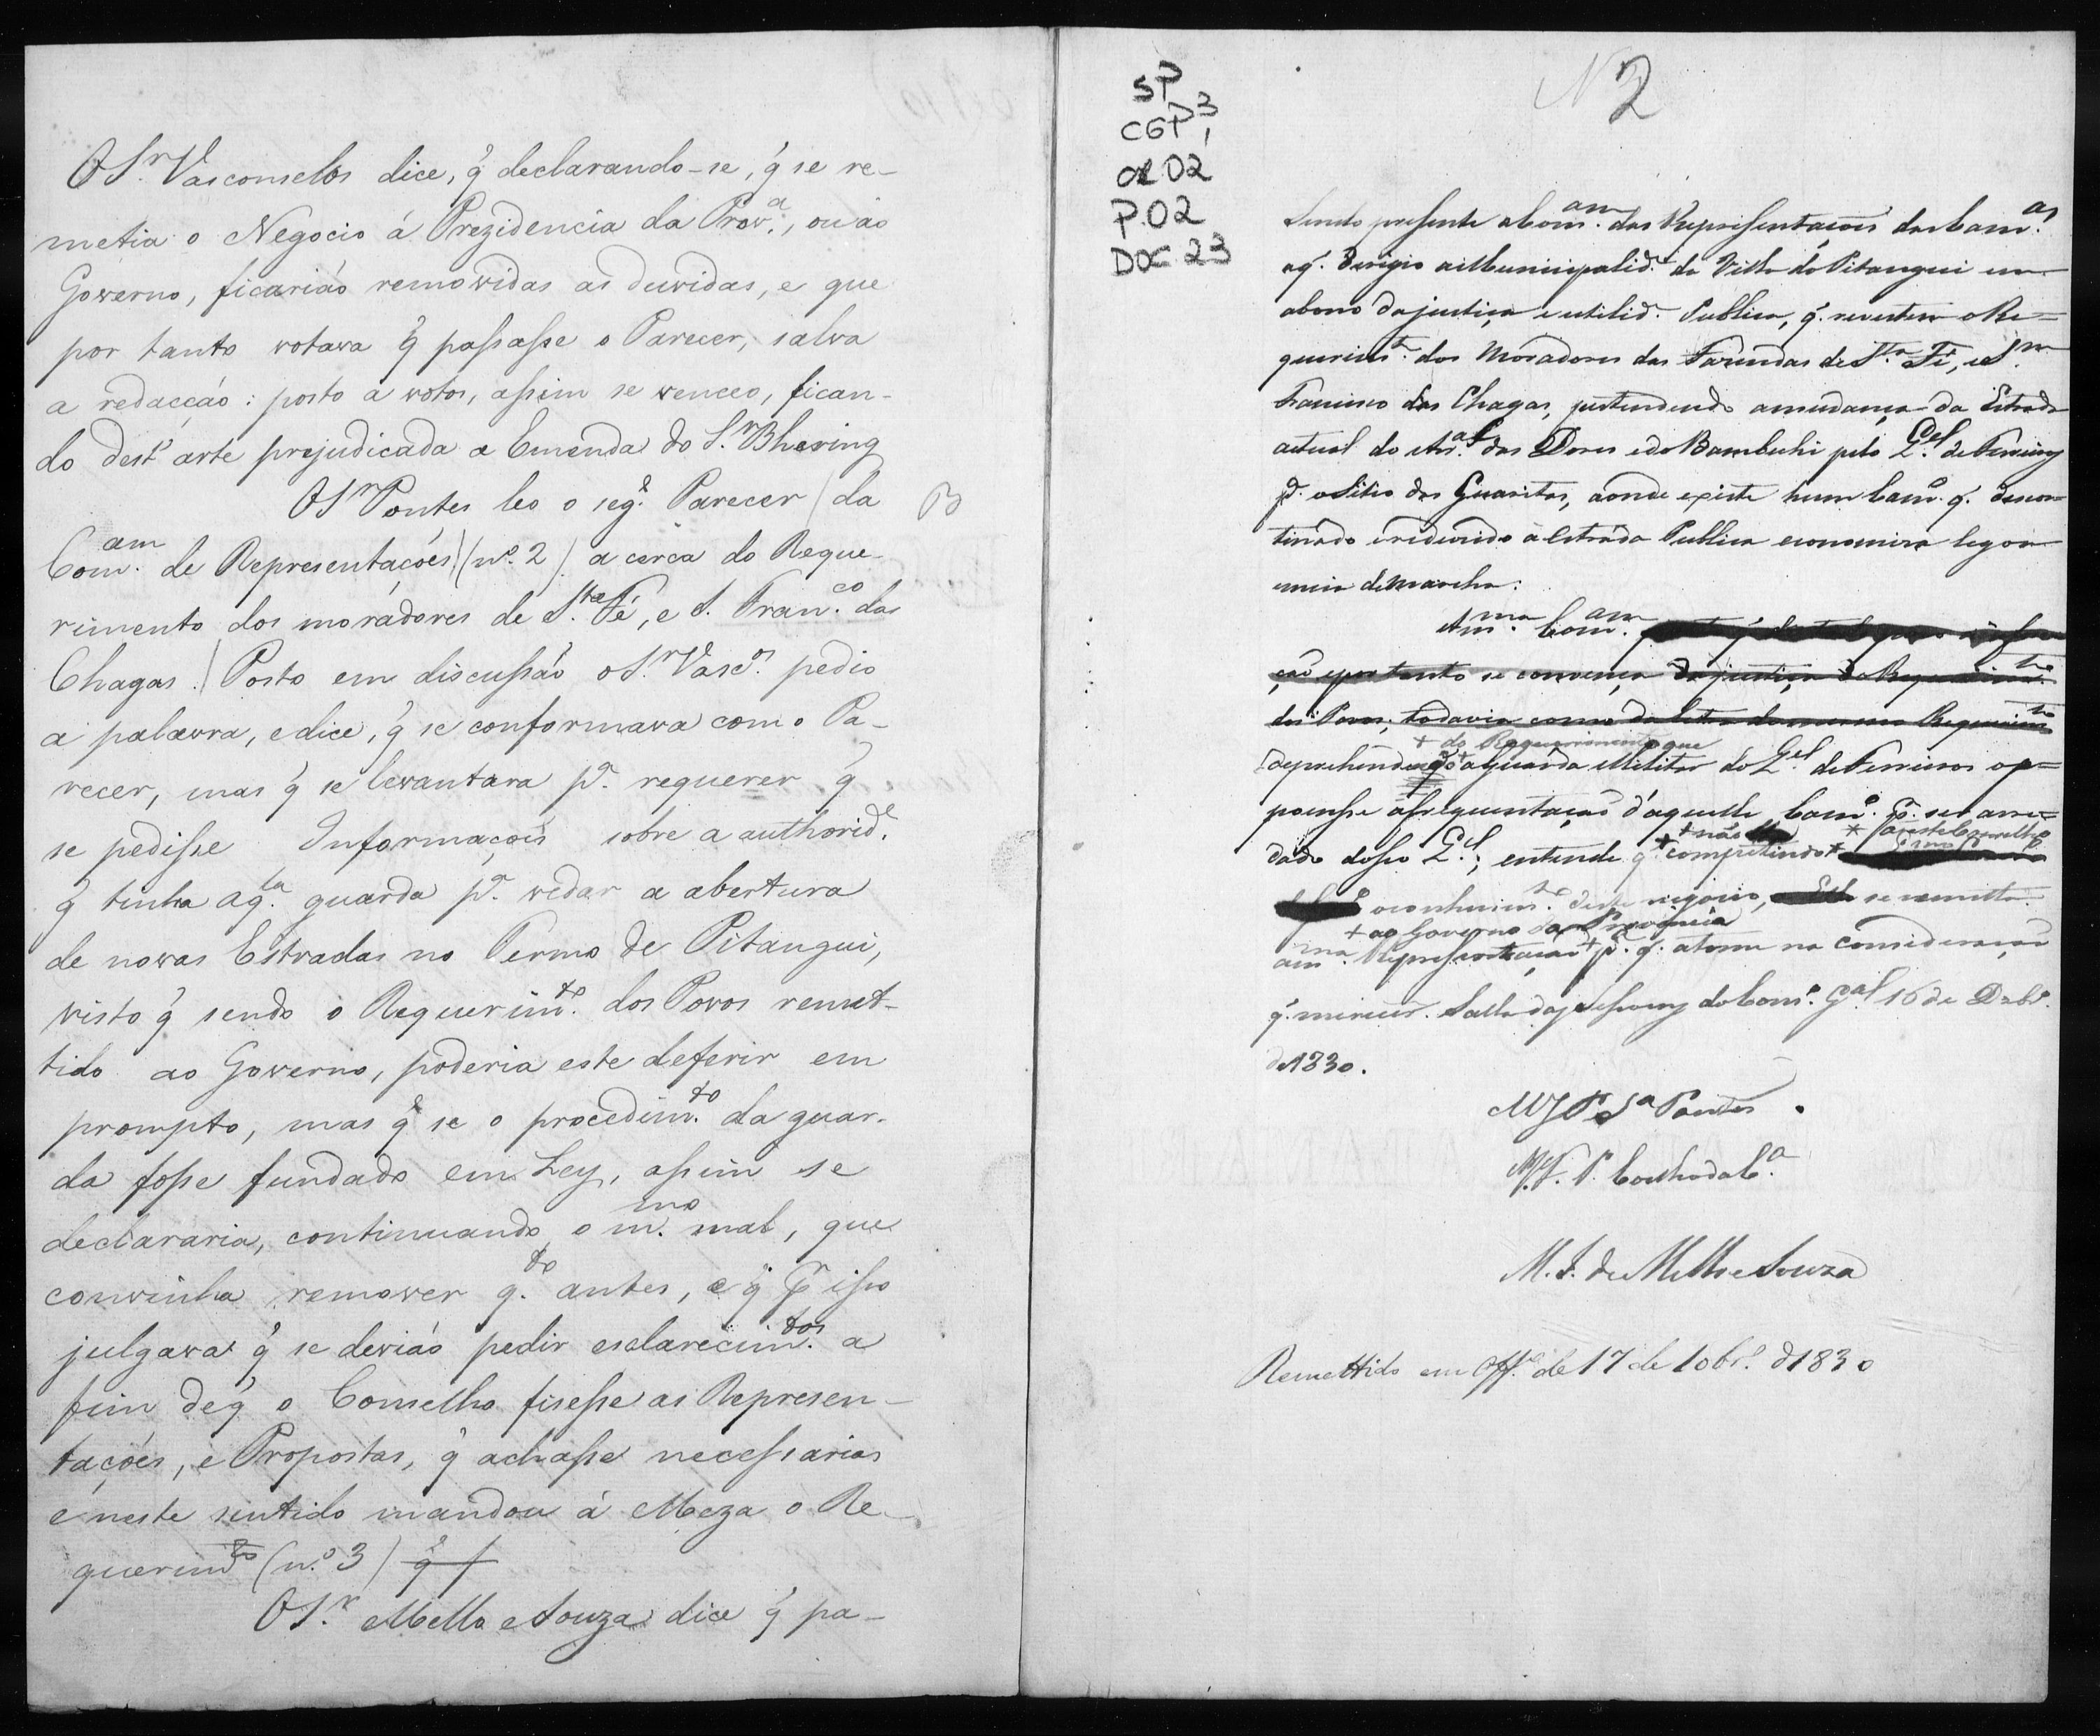 O Sr. Vasconcelos dice, q̃ declarando-se, q̃ se re-
metia o Negocio á Prezidencia da Prov.ª, ou ao
Governo, ficariáo removidas as duvidas, e que
por tanto votava q̃ passasse o Parecer, salva
a redacçáo: posto a votos, assim se venceo, fican-
do dest'arte prejudicada a Emenda do S.r Bhering
O Sr Pontes leo o seg.e Parecer / da
B
Com.am de Representaçóes / (nº. 2) a cerca do Reque-
rimento dos moradores de S.ta Fé, e S. Fran.co das
Chagas. / Posto em discussáo o S.r Vasc.os pedio
a palavra, e dice, q̃ se conformava com o Pa-
recer, mas q̃ se levantara p.a requerer q̃
se pedisse Informaçoés sobre a authorid.e
q̃ tinha aq.la guarda p.a vedar a abertura
de novas Estradas no Termo de Pitangui,
visto q̃ sendo o Requerim.to dos Povos remet-
tido ao Governo, poderia este deferir em
prompto, mas q̃ se o procedim.to da guar-
da fosse fundado em Ley, assim se
declararia, continuando o m.mo mal, que
convinha remover q.to antes, e q̃ pr isso
julgava q̃ se deviáo pedir esclarecim.tos a
fim de q̃ o Conselho fisesse as Represen-
taçóes, e Propostas, q̃ achasse necessarias
e neste sentido mandou á Meza o Re-
querim.to (n.º 3) q̃
O S.r Mello e Souza dice q̃ pa-
SP
CGP 3,
02
P.02
DOC 23
N 2
Sendo presente a Com.am das Representaçoes das Cam.as
a q̃. dirigio a Municipalid.e da Villa do Pitangui em
abono da justiça e utilid.e Publica, q̃. revestem o Re=
querim.to dos Moradores das Fazendas de S.ta Fé, e S.m
Francisco das Chagas, pertendendo a mudança da Estrada
actual do Ar.al das Dores e do Bambuhi pelo Q.el de Ferreiros
p.a o Sitio das Guaritas, aonde existe hum Cam.o q̃. descor-
tinado e redusido á Estrada Publica economisa legoa
e meia de marcha:
A m.ma Com.am
ção e por tanto se convença da justiça do Requerim.to
dos Povos; todavia como da letra do mesmo Requerim.to
+ do Requerimento que
deprehendendo a Guarda Militar do Q.el de Ferreiros op=
poem-se á frequentação d'aquelle Cam.o p.r ser arre=
+ não * a este Conselho
dado do seo Q.el; entende q̃. + competindo *
o conhecim.to deste negocio, se remetta
+ ao Governo da Provincia
a m.ma Representação + p.a q̃. a tome na consideração
q̃. merecer. Salla das Sessoens do Cons.o G.al 16 de Dzbr.o
de 1830.
M J P S.a Pontes.
M. J. de Mello e Souza
Remettido em Off.o de 17 de 10br.o d 1830